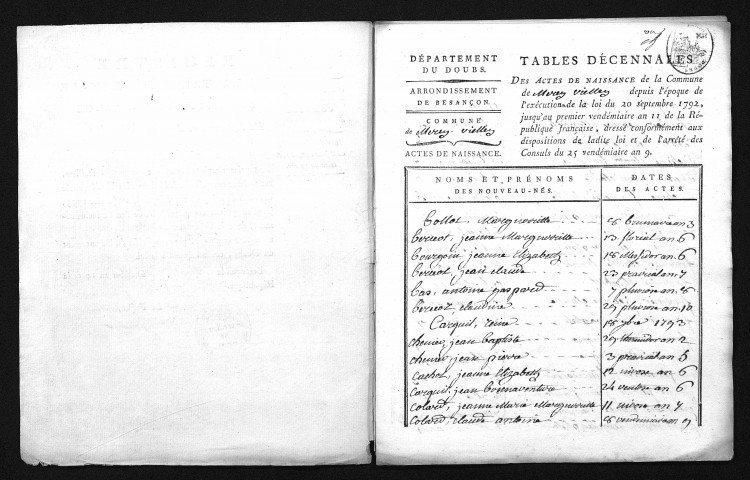 DÉPARTEMENT
DU DOUBS.
ARRONDISSEMENT
DE BESANÇON.
COMMUNE
de Merey vielley
ACTES DE NAISSANCE.
TABLES DÉCENNALES
DES ACTES DE NAISSANCE de la Commune
de Merey Vielley depuis l'époque de
l'exécution de la loi du 20 septembre 1792,
jusqu'au premier vendémiaire an 11 de la Ré-
publique française, dressé conformément aux
dispositions de ladite loi et de l'arrêté des
Consuls du 25 vendémiaire an 9.
NOMS ET PRÉNOMS
DES NOUVEAU-NÉS.
DATES
DES ACTES.
Bollot, Marguerritte 8 brumaire an 3
jeanne Marguerritte 13 floréal an 6
Bourgoin, jeanne Elizabeth 18 Messidor an 6
jean claude 23 prairial an 7
Bas, antoine gaspared 7 pluviose an 8
claudine 29 pluviose an 10
Carquil, reine 18 9bre 1793
chenier, jean baptiste 29 thermidor an 2
chenier, jean pierre 3 prairial an 5
cachot, jeanne Elizabeth 12 nivose an 6
Carquil, jean bonnaventure 24 ventose an 6
colard, jeanne Marie Marguerritte 11 nivose an 7
colard, claude antoine 8 vendemiaire an 9